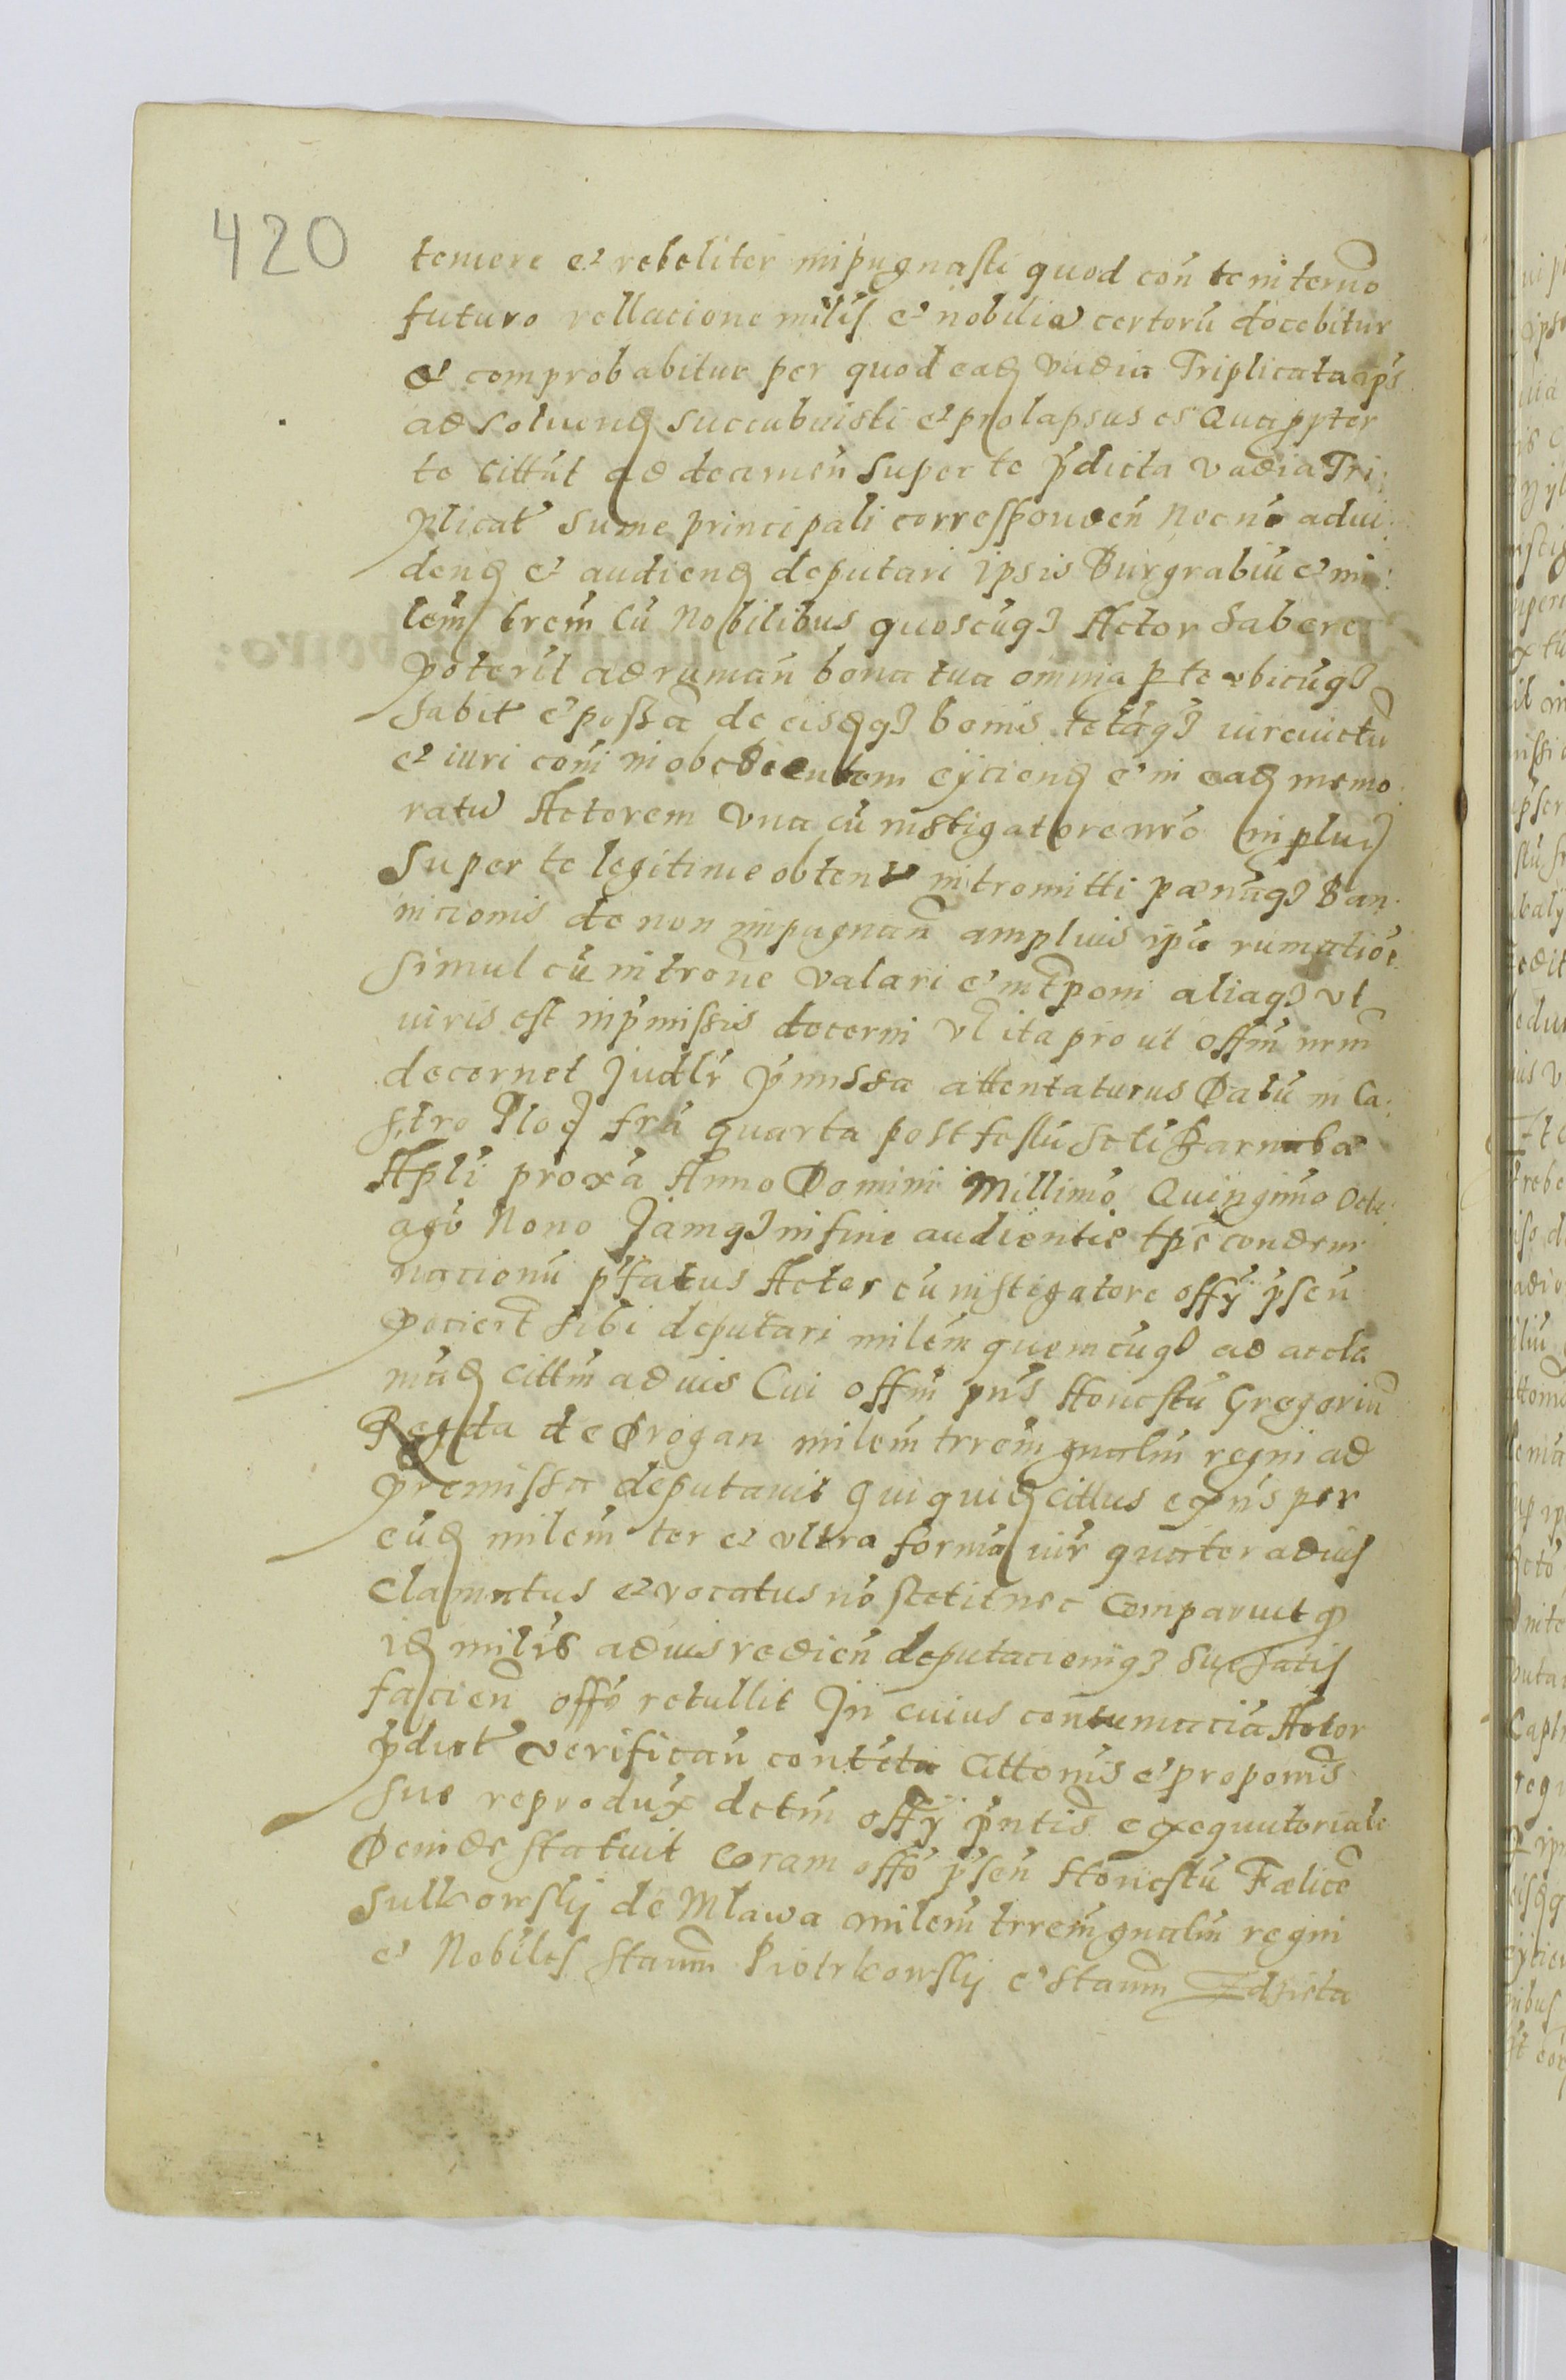 420
temere et rebeliter impugnasti quod con te in termo
futuro rellatione milis et nobiliu certoru docebitur
et comprobabitur per quod eadz vadia Triplicata ips
ad soluendz succubuisti et prolapsus es Quappter
te cittat ad decamen super te pdicta vadia Tri
plicat sume principali corresponden Necno adui
dendz et audiendz deputari ipsis Burgrabiu et mi
lem trem cu Nobilibus quoscuqz Actor habere
poterit ad ruman bona tua omnia p te vbicuqz
habit et possa de eisdzqz bonis tetaqz iurevictu
et iuri coni inobedientem eijciendz et in eadz memo
ratu Actorem vna cu instigatore nro in
super te legitime obten intromitti pœnaqz Ban
nicionis de non impugnan amplius ipa rumatioe
simul cu introne valari et interponi aliaqz vt
iuris est in pmissis decerni vl ita pro ut offm nrm
decernet Judlr pmissa attentaturus Datu in Ca
stro Ploc fria quarta post festu scti Barnabæ
Apli proxa Anno Domini Millimo Quingimo Octu
ago Nono Jamqz in fine audientie tpe condem
nacionu pfatus Actor cu instigatore offij psen
peciert sibi deputari milem quemcuqz ad accla
madz cittm ad uis Cui offm pns Honestu Gregoriu
Regda de Drogan milem trrem gnalm regni ad
premissa deputauit qui quidz cittus expns per
eudz milem ter et vltra forma iur quater ad uis
clamatus et vocatus no stetit nec Comparuit q
idz milis ad uis redien deputacioniqz sue satis
facien offo retullit In cuius contumacia Actor
pdict verifican contcta Cittonis et proponis
sue reprodux dctm offij pntis exequutoriale
Deinde statuit Coram offo psen Honestu Fælice
Sulkowskij de Mlawa milem trrem gnalm regni
et Nobiles Stanm Piotrkowskij et Stanm